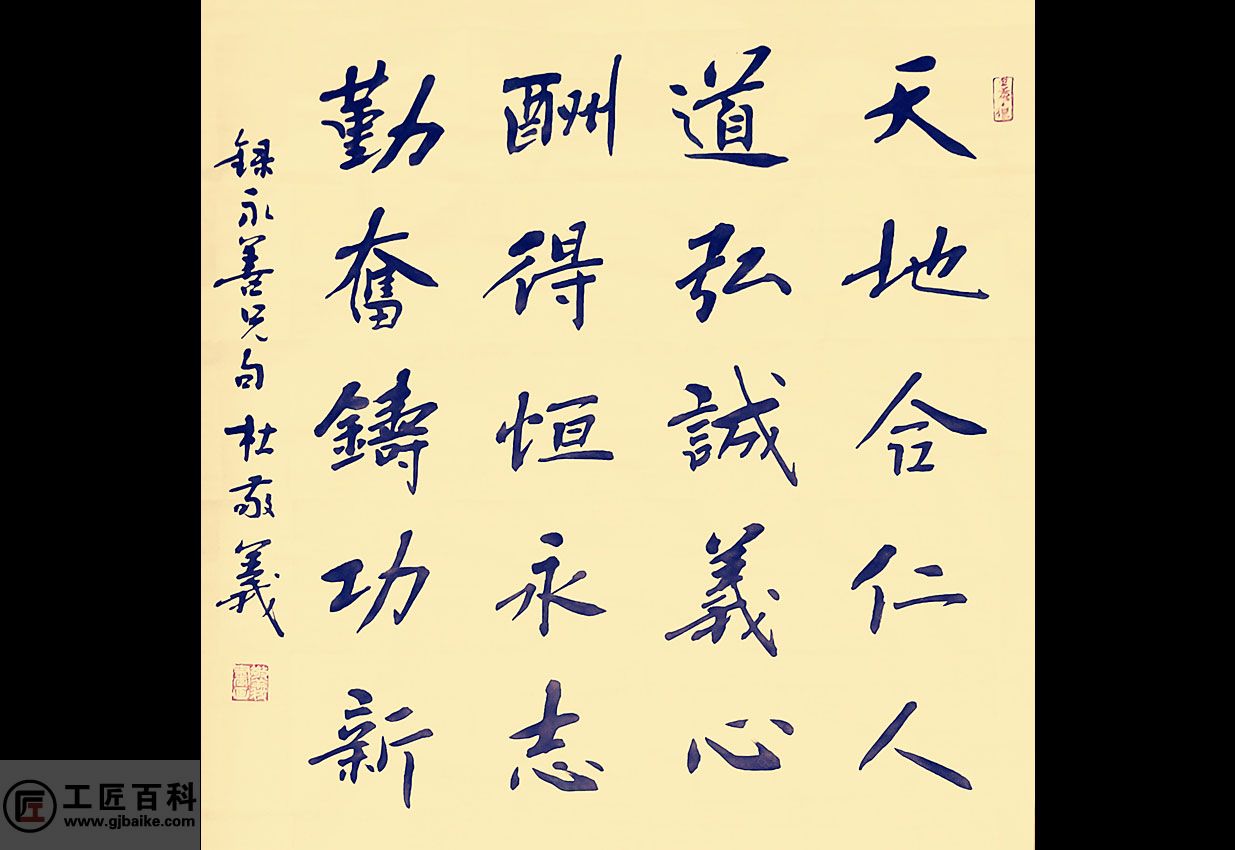 天地合仁人
道弘誠義心
酬得恒永志
勤奮鑄功新
録永善兄句 杜敬義
工匠百科
www.gjbaike.com